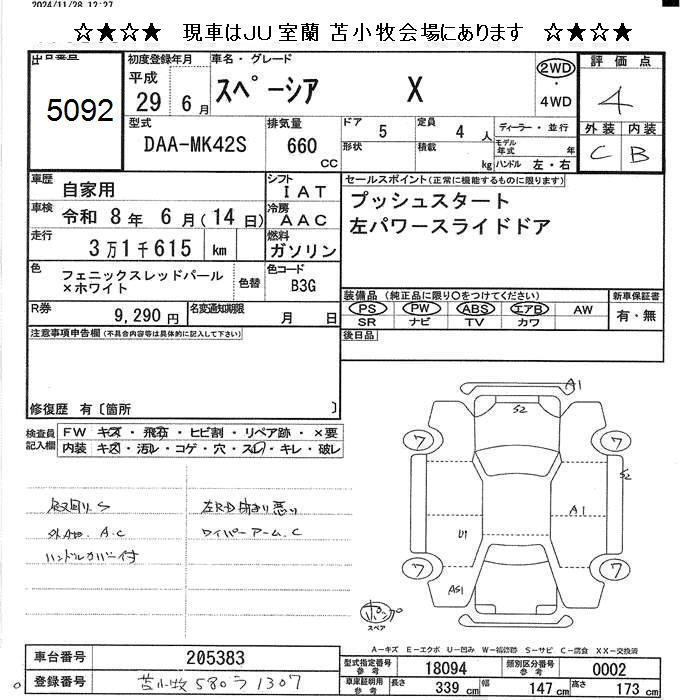 2024/11/28 12:27
☆★☆★ 現車はJU室蘭 苫小牧会場にあります ☆★☆★
出品番号
5092
初度登録年月
平成
29 年 6 月
車名・グレード
スペーシア X
2WD
・
4WD
評価点
4
外装 内装
C B
型式
DAA-MK42S
排気量
660
CC
ドア 5
定員 4 人
形状
積載 kg
ディーラー・並行
モデル年式 年
ハンドル 左・右
車歴 自家用
シフト IAT
車検 令和 8 年 6 月(14 日)
冷房 AAC
走行 3万1千615 km
燃料 ガソリン
色 フェニックスレッドパール
×ホワイト
色替
色コード B3G
R券 9,290 円
名変通知期限 月 日
セールスポイント(正常に機能するものに限ります)
プッシュスタート
左パワースライドドア
装備品 (純正品に限り○をつけてください)
PS PW ABS エアB AW
SR ナビ TV カワ
新車保証書
有・無
後日品
注意事項申告欄(不具合内容等は具体的に記入して下さい)
修復歴 有〔箇所 〕
検査員記入欄
FW キズ・飛石・ヒビ割・リペア跡・×要
内装 キズ・汚れ・コゲ・穴・スレ・キレ・破レ
左R-D 閉まり悪い
外廻. A.C
ワイパーアーム. C
ハンドルカバー付
A1
S2
ワ ワ
S2
A1
U1
ワ ワ
AS1
スペア
A-キズ E-エクボ U-凹み W-補修跡 S-サビ C-腐食 XX-交換済
車台番号 205383
登録番号 苫小牧 580 ラ 1307
型式指定番号 参考 18094
類別区分番号 参考 0002
車庫証明用 参考 長さ 339 cm 幅 147 cm 高さ 173 cm